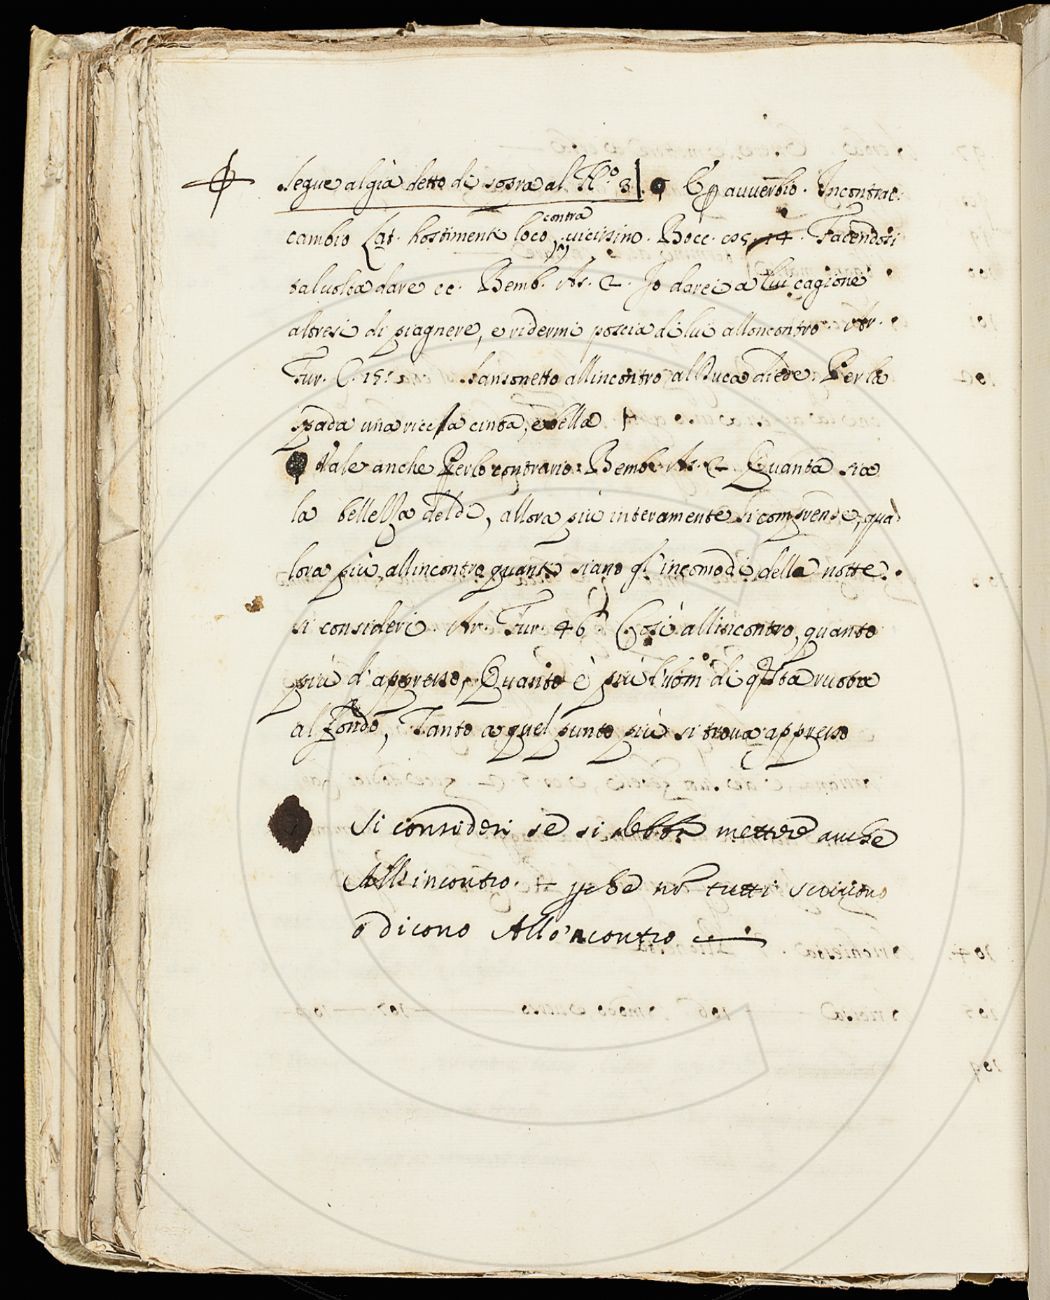 segue al già detto di sopra al N.º 8
È avverbio. Incontrac
cambio Lat. hostimenti loco, contra, vicissim. Bocc. Facendosi
talvolta dare ec. Bemb. As. 2. Io darei a lui cagione
altresi di piagnere, e ridermi poscia di lui alloncontro. Ar.
Fur. C. 15. Sansonetto allincontro al Duca diede: Per la
spada una ricca cinta, e bella
Vale anche Per lo contrario: Bemb. As. 2. Quanta sia
la bellezza del dì, allora più interamente si comprende, qua
lora più allincontro quanti siano gl'incomodi della notte
si consideri. Ar. Fur. 46 Così allincontro, quanto
più di appresso, Quanto è più l'uom di qsta ruota
al fondo, Tanto a quel punto più si trova appresso
Si consideri se si debba mettere anche
All'incontro. pche nõ tutti scrivono
o dicono Allo'ncontro